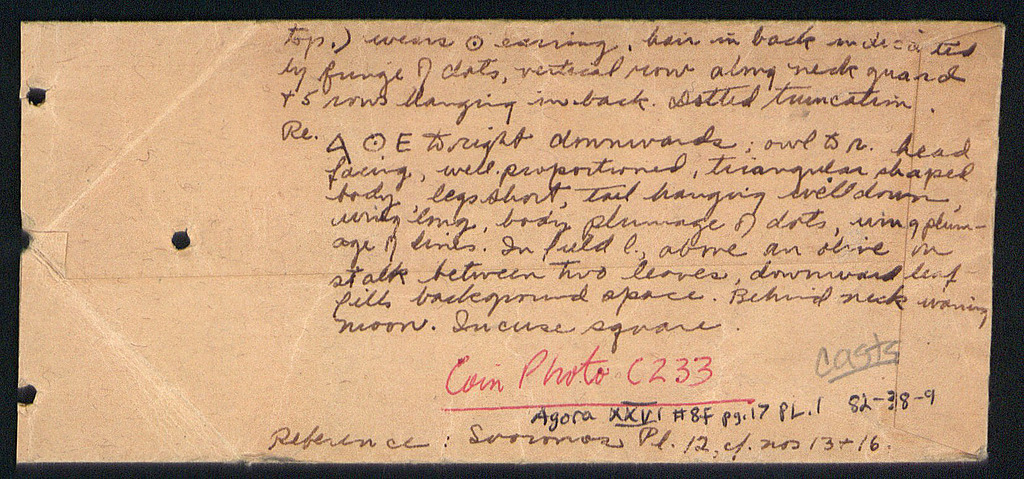 top.) wears ⊙ earring, hair in back indicated
by fringe of dots, vertical row along neck guard
+ 5 rows hanging in back. Dotted truncation.
Re. Α Θ Ε to right downwards; owl to r. head
facing, well proportioned, triangular shaped
body, legs short, tail hanging well down,
wing long, body plumage of dots, wing plum-
age of lines. In field l., above an olive on
stalk between two leaves, downward leaf
fills background space. Behind neck waning
moon. Incuse square.
casts
Coin Photo C233
Agora XXVI #8f pg.17 PL.1 82-38-9
Reference: Svoronos Pl. 12, cf. nos 13+16.